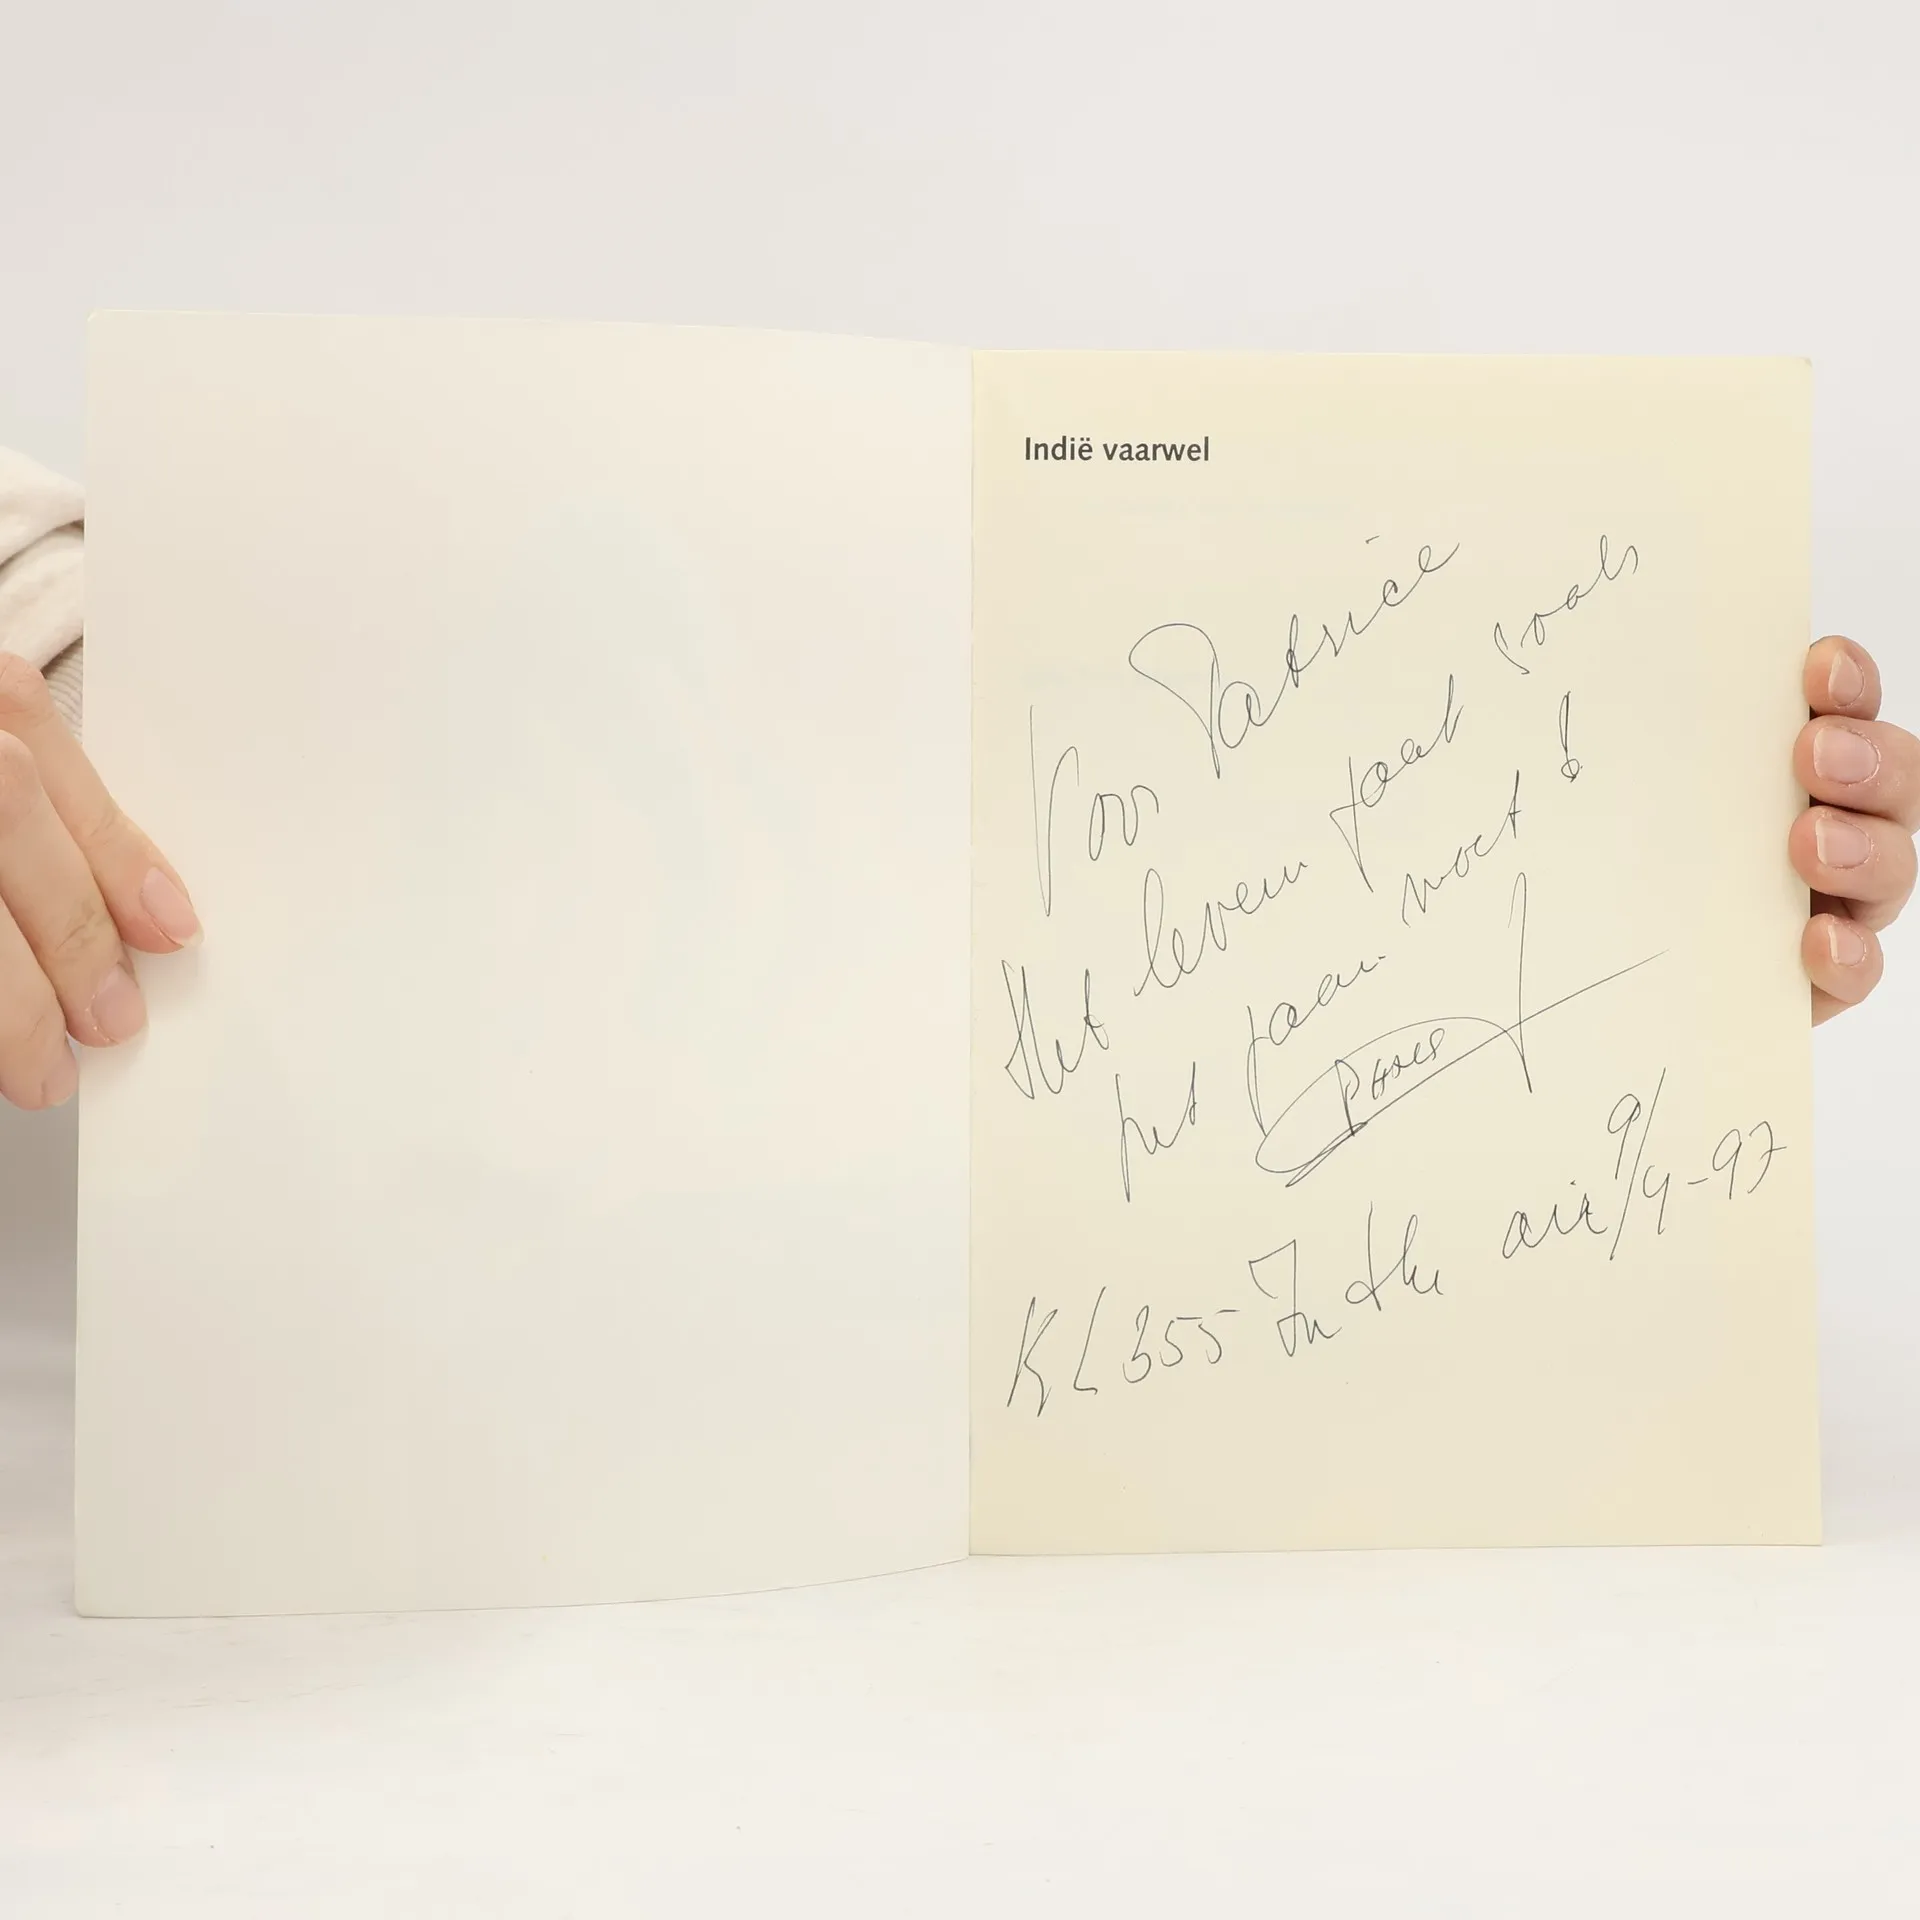 Indië vaarwel
Voor Patrice
Het leven gaat zoals
het gaan moet!
KL 355 - In the air 9/9-97